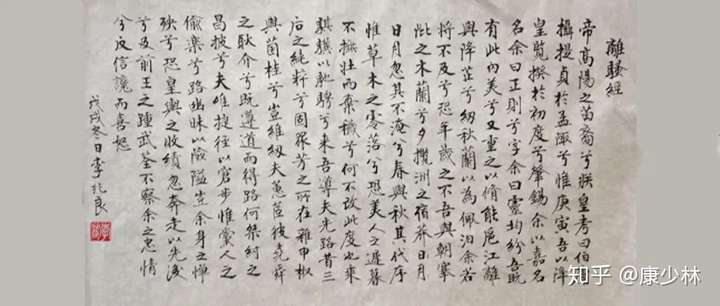 離騷經
帝高陽之苗裔兮朕皇考曰伯
攝提貞於孟陬兮惟庚寅吾以降
皇覽揆於初度兮肇錫余以嘉名
名余曰正則兮字余曰靈均紛吾既
有此內美兮又重之以脩能扈江離
與辟芷兮紉秋蘭以為佩汩余若
將不及兮恐年歲之不吾與朝搴
阰之木蘭兮夕攬洲之宿莽日月
日月忽其不淹兮春與秋其代序
惟草木之零落兮恐美人之遲暮
不撫壯而棄穢兮何不改此度也來
騏驥以馳騁兮來吾導夫先路昔三
后之純粹兮固眾芳之所在雜申椒
與菌桂兮豈維紉夫蕙茝彼堯舜
之耿介兮既遵道而得路何桀紂之
昌披兮夫唯捷徑以窘步惟黨人之
偷樂兮路幽昧以險隘豈余身之憚
殃兮恐皇輿之敗績忽奔走以先後
兮及前王之踵武荃不察余之忠情
兮反信讒而怒
戊戌冬日李兆良
知乎 @康少林